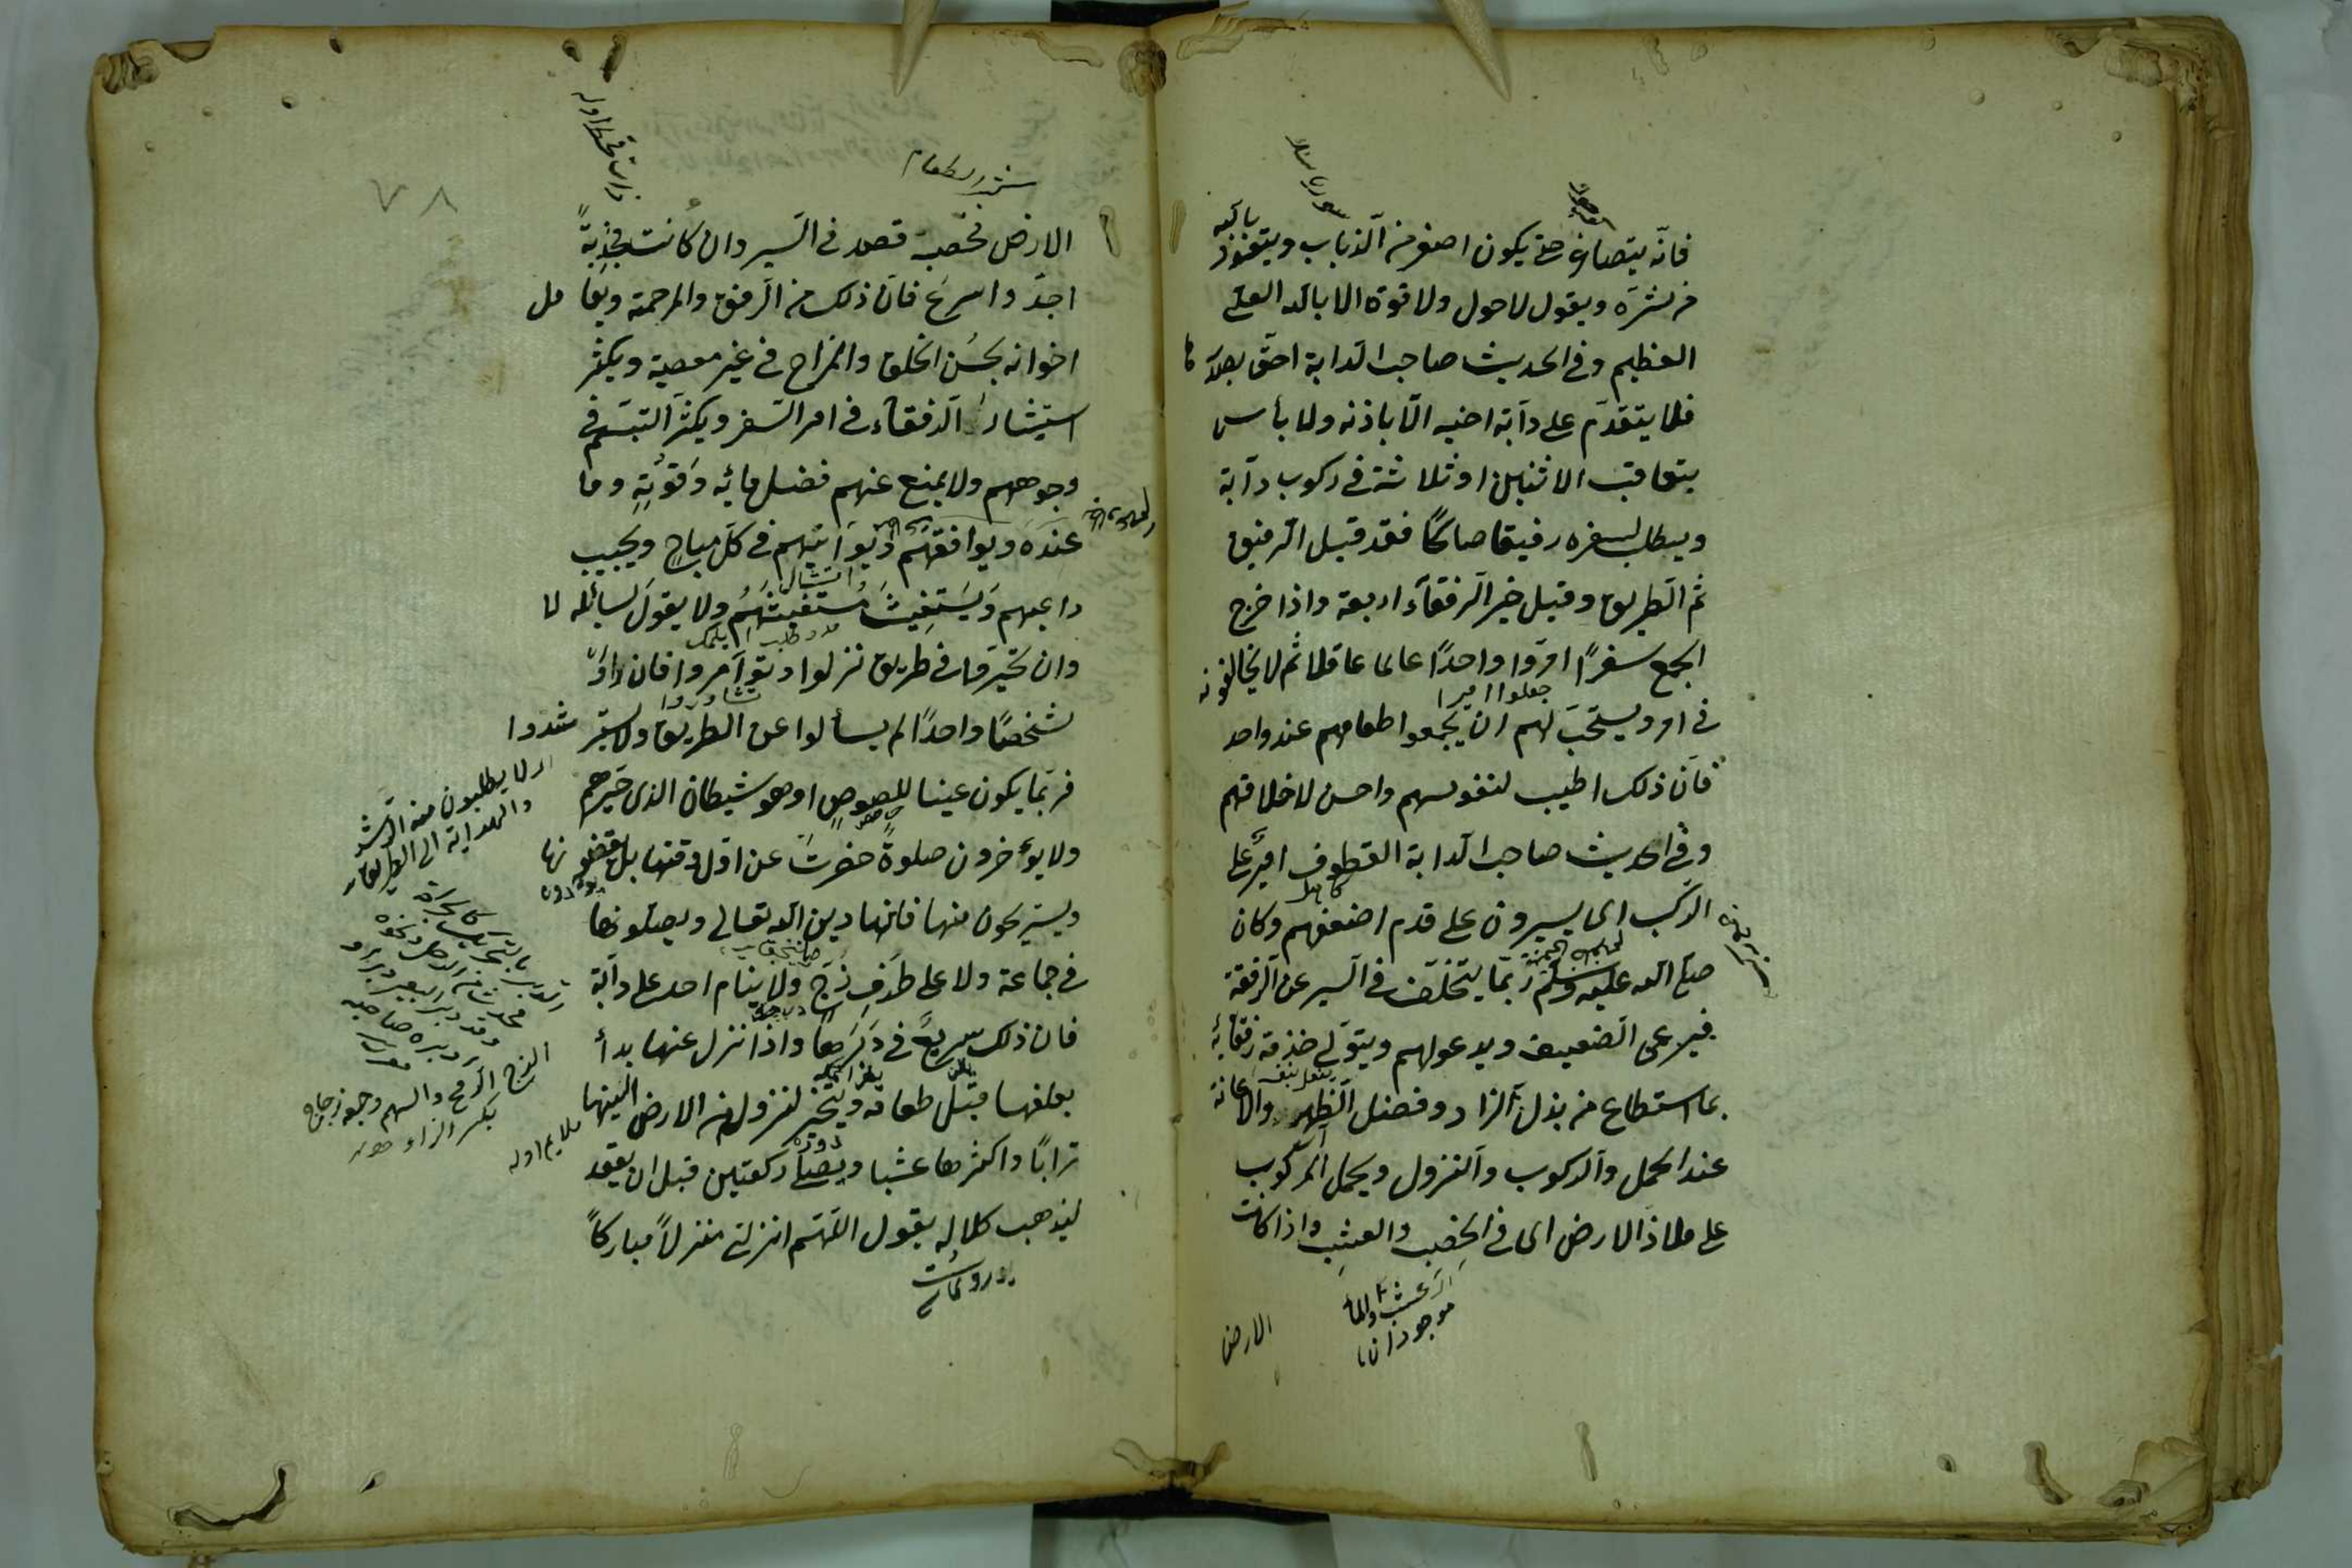 فانّه يتصاغر حتى يكون اصغر من الذباب ويتعوّذ بالله
من شرّه ويقول لا حول ولا قوة الا بالله العلى
العظيم وفى الحديث صاحب الدابة احقّ بصدرها
فلا يتقدّم على دآبة اخيه الّا باذنه ولا بأس
بتعاقب الاثنين او ثلاثة فى ركوب دآبة
ويطلب لسفره رفيقا صالحًا فقد قيل الرفيق
ثم الطريق وقيل خير الرفقآء اربعة واذا خرج
الجمع سفرًا امّروا واحدًا عالما عاقلا ثم لا يخالفونه
جعلوا اميرا
فى امر ويستحبّ لهم ان يجمعوا طعامهم عند واحد
فانّ ذلك اطيب لنفوسهم واحسن لاخلاقهم
وفى الحديث صاحب الدابة القطوف امير على
الركب اى يسيرون على قدم اضعفهم وكان
صلى الله عليه وسلم ربّما يتخلّف فى السير عن الرفقة
فيرعى الضعيف ويدعو لهم ويتولّى خدمة رفقائه
بما استطاع من بذل الزاد وفضل الظهر والاعانة
عند الحمل والركوب والنزول ويحمل المركوب
على ملاذ الارض اى فى الخصب والعشب واذا كانت
اى عشب والماء
موجودان
الارض
٧٨
الارض مخصبة قصد فى السير وان كانت مجدبةً
اجدّ واسرع فانّ ذلك من الرفق والمرحمة ويعامل
اخوانه بحسن الخلق والمزاح فى غير معصية ويكثر
استيشار الرفقاء فى امر السفر ويكثر التبسّم فى
وجوههم ولا يمنع عنهم فضل مائه وقوته وما
عنده ويوافقهم ويواتيهم فى كل مباح ويجيب
داعيهم ويستغيث مستغيثهم ولا يقول لسائله لا
وان تحيّرتما فى طريق نزلوا وتوآمروا فان راوا
تشاوروا
شخصًا واحدًا لم يسألوا عن الطريق ولا يسترشدوا
اى لا يطلبون منه الرشد
والهداية الى الطريق
فربّما يكون عينا للصوص او هو شيطان الذى حيّرهم
ولا يؤخرون صلوةً حضرت عن اوّل وقتها بل يقضونها
ويستريحون منها فانها دين الله تعالى ويصلونها
فى جماعة ولا على طرف زجّ ولا ينام احد على دآبّة
فان ذلك سريع فى دبرها واذا نزل عنها بدأ
بعلفها قبل طعامه ويتخيّر لنزول من الارض الينها
ترابًا واكثرها عشبا ويصلّى ركعتين قبل ان يقعد
ليذهب كلاله يقول اللهم انزلنى منزلًا مباركًا
الزج الرمح والسهم وجمعه زجاج
بكسر الزاء